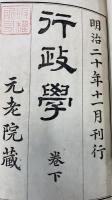 明治二十年十一月刊行
行政學 卷下
元老院藏